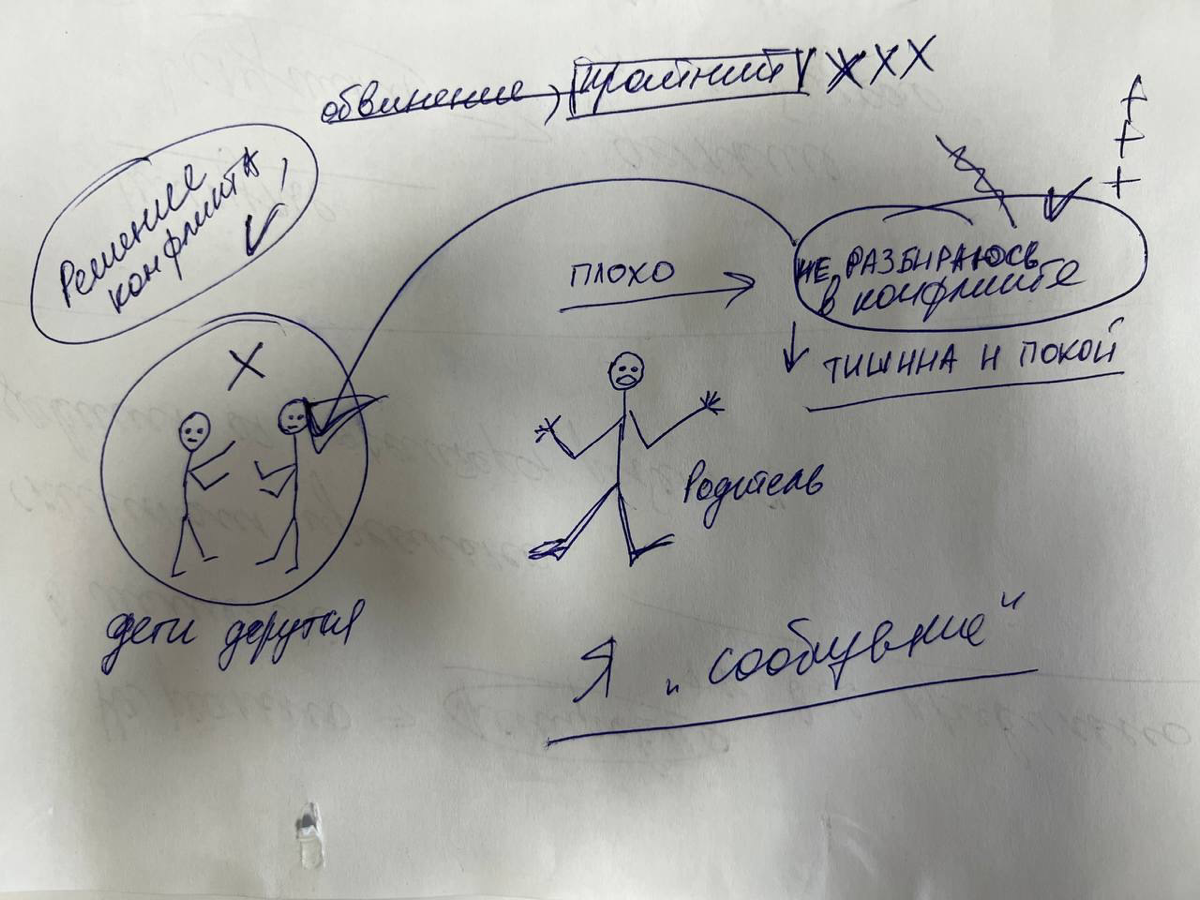 обвинение, крайний XXX
Решение
конфликта,
ПЛОХО
НЕ РАЗБИРАЮСЬ
в конфликте
ТИШИНА И ПОКОЙ
Родитель
дети дерутся
Я „сообщение"